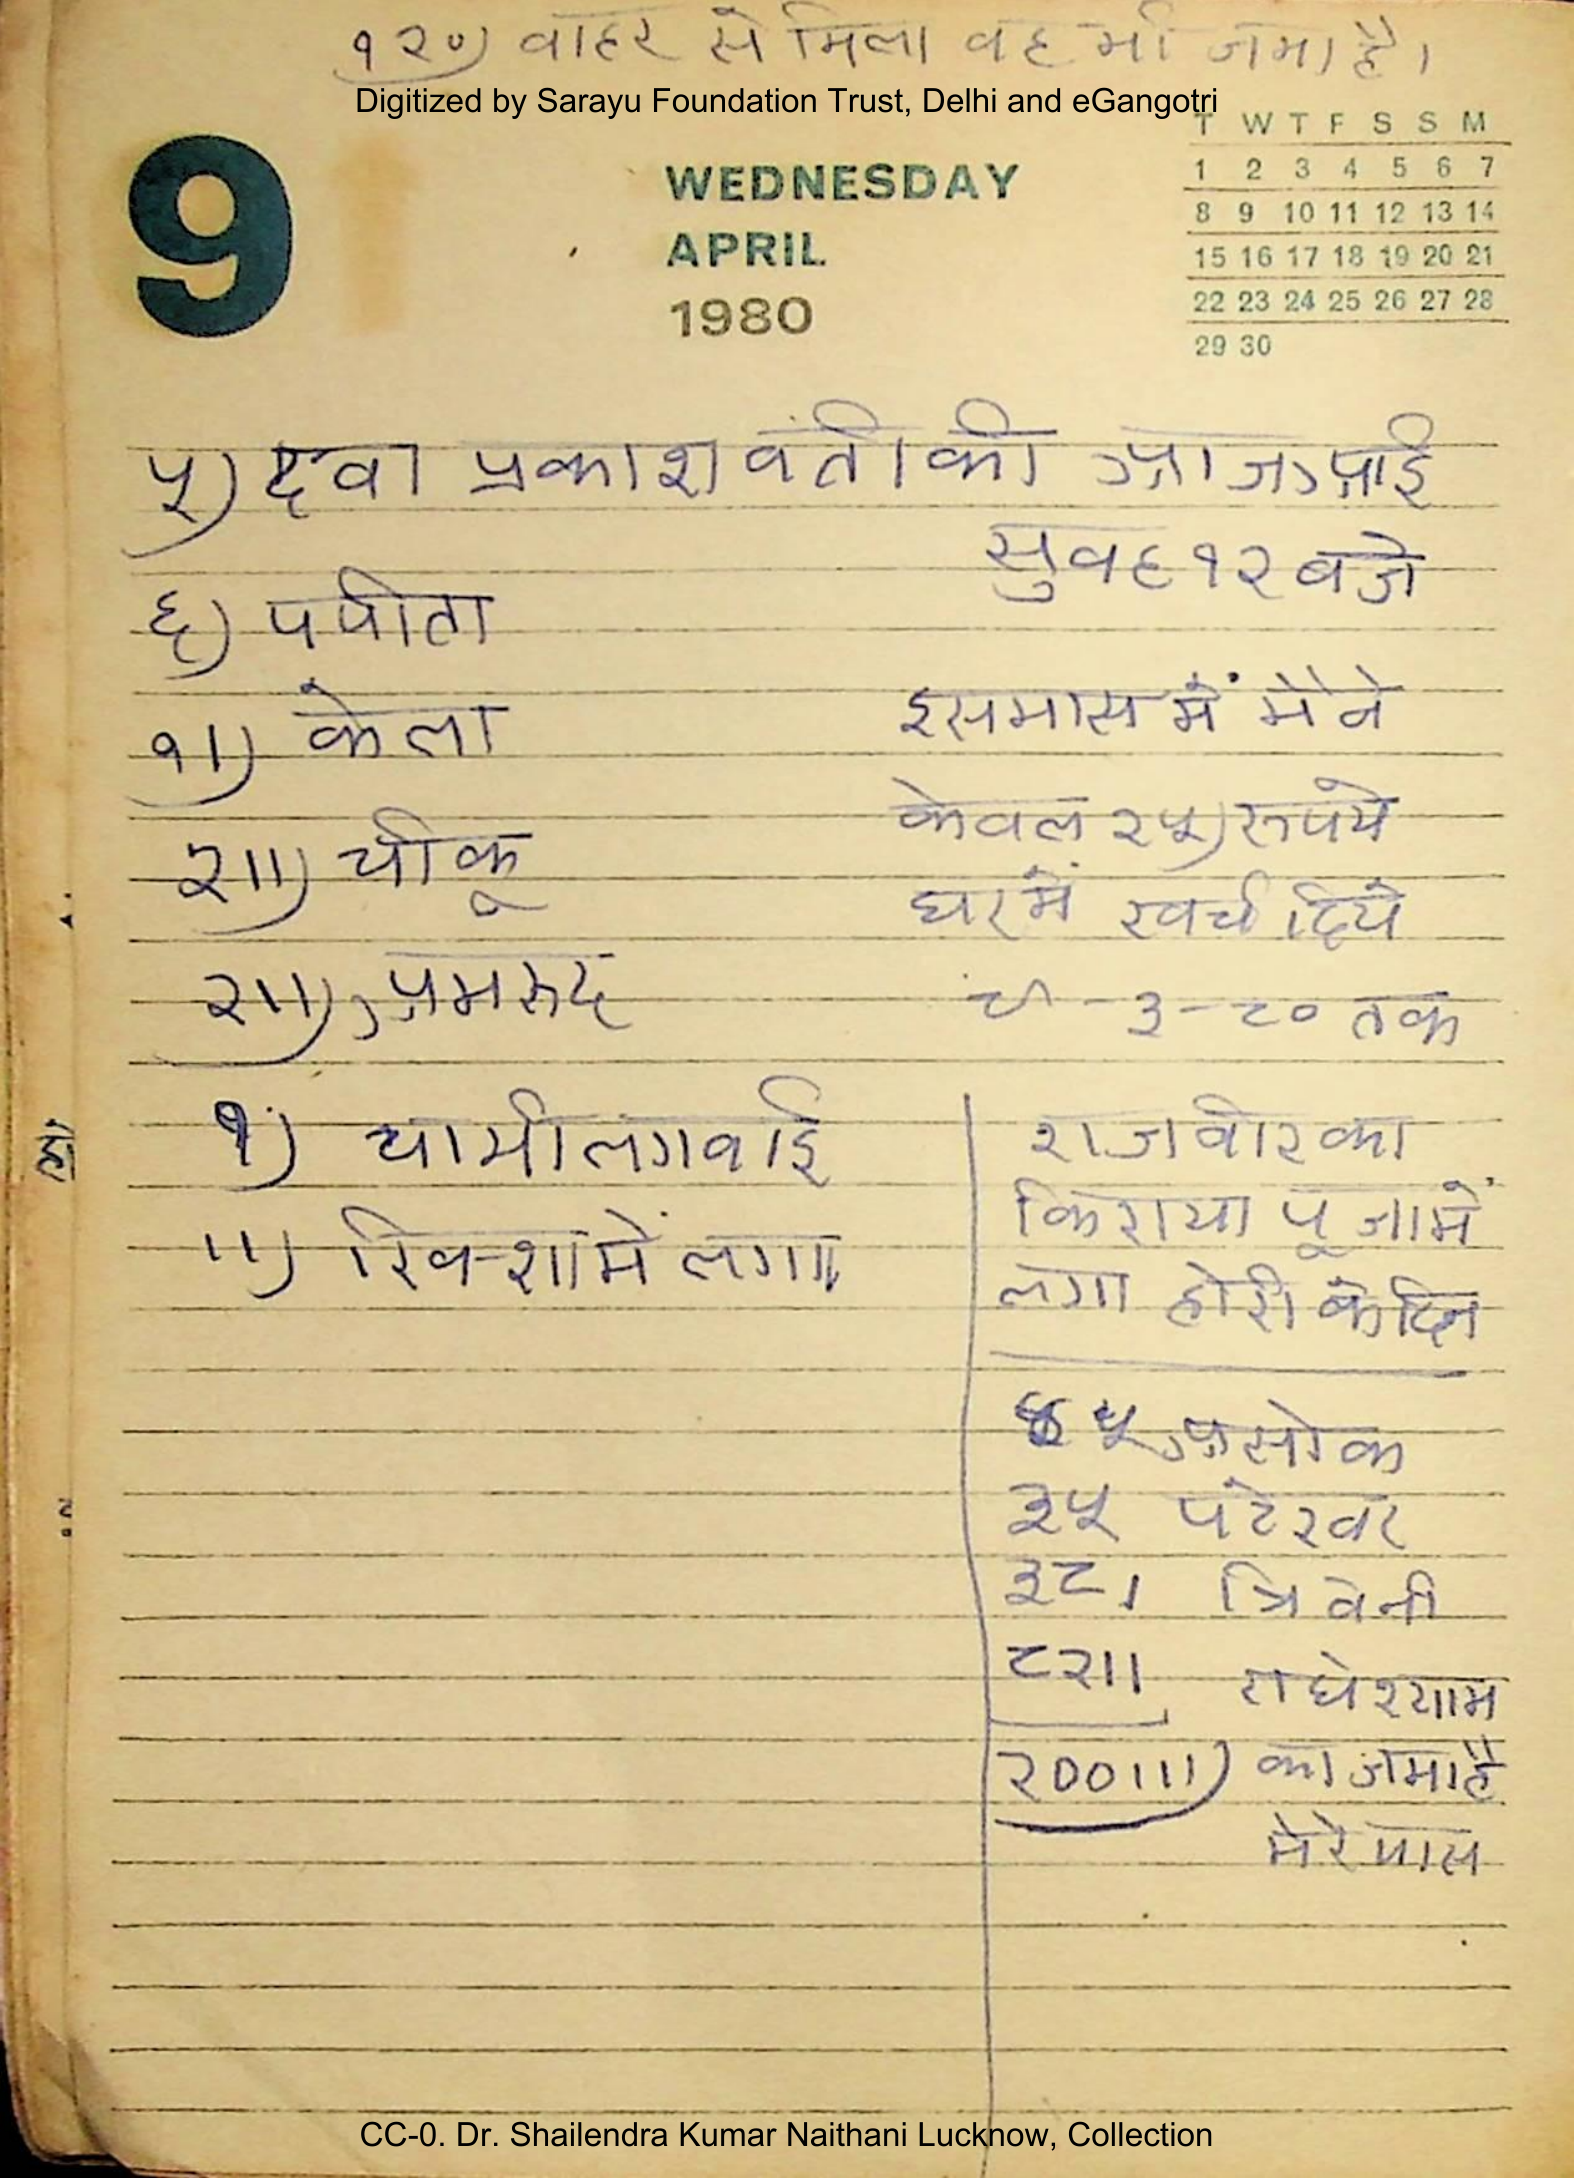 १२०) वाहर से मिला वह भी जमा है।
Digitized by Sarayu Foundation Trust, Delhi and eGangotri
9
WEDNESDAY
APRIL
1980
T W T F S S M
1 2 3 4 5 6 7
8 9 10 11 12 13 14
15 16 17 18 19 20 21
22 23 24 25 26 27 28
29 30
५) दवा प्रकाशवंती की आज आई
सुवह १२ बजे
६) पपीता
१।) केला
२॥) चीकू
२॥) अमरूद
१) चाभी लगवाई
॥) रिक्शा में लगा
इस मास में मैंने
केवल २५) रूपये
घर में खर्च दिये
-३-८० तक
राजवीर का
किराया पूजा में
लगा होरी के दिन
४५ असोक
३५ पटेस्वर
३८। त्रिवेनी
८२॥ राधेश्याम
२००॥।) का जमा है
मेरे पास
CC-0. Dr. Shailendra Kumar Naithani Lucknow, Collection